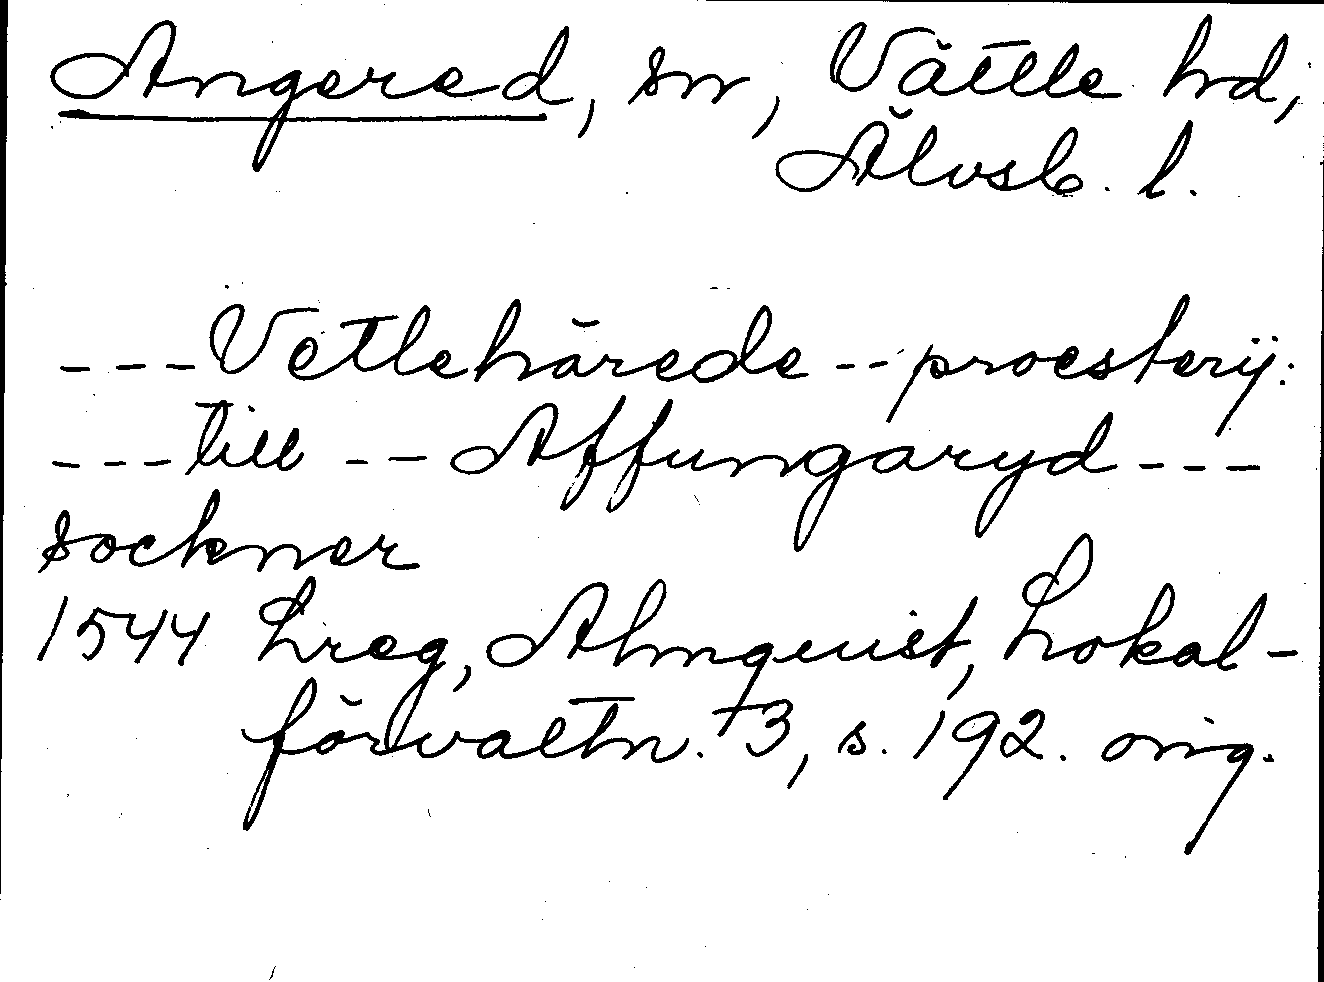 Angered, sn, Vättle hd,
Älvsb. l.
---Vetlehärede--proesterij:
---till -- Affungaryd---
sockner
1544 Lreg, Almquist, Lokal-
förvaltn. 3, s. 192. orig.